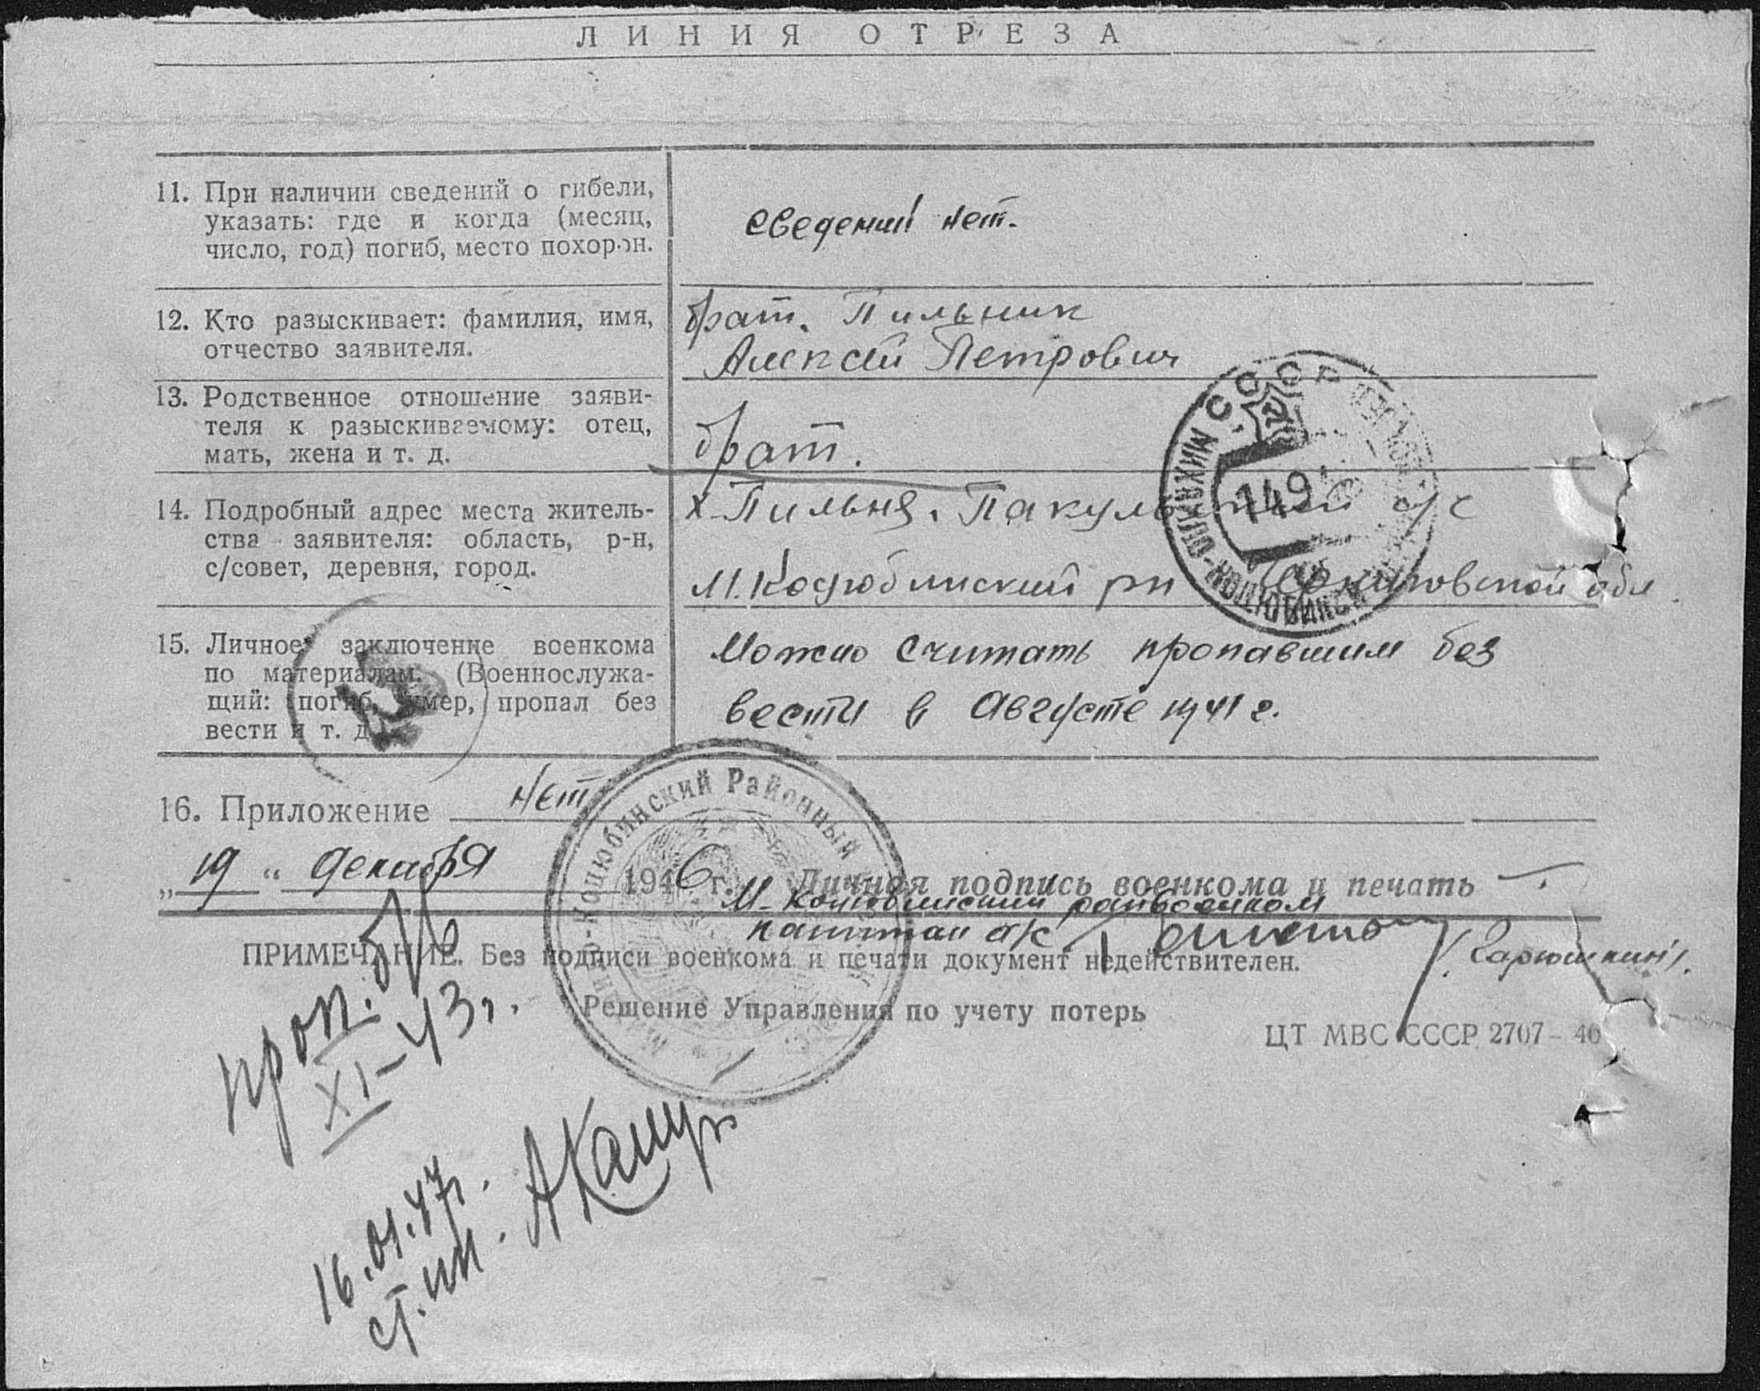 ЛИНИЯ ОТРЕЗА
11. При наличии сведений о гибели,
указать: где и когда (месяц,
число, год) погиб, место похорон.
сведений нет.
12. Кто разыскивает: фамилия, имя,
отчество заявителя.
брат. Пильник
Алексей Петрович
13. Родственное отношение заяви-
теля к разыскиваемому: отец,
мать, жена и т. д.
брат.
14. Подробный адрес места житель-
ства заявителя: область, р-н,
с/совет, деревня, город.
х. Пильня. с/с
М. Коцюбинский рн Черниговской обл.
15. Личное заключение военкома
по материалам. (Военнослужа-
щий: погиб, умер, пропал без
вести и т. д.
Можно считать пропавшим без
вести в Августе 1941 г.
16. Приложение нет
„19“ декабря 1946 г. Личная подпись военкома и печать
М-Коцюбинский райвоенком
капитан а/с
/Гарюшкин/.
ПРИМЕЧАНИЕ. Без подписи военкома и печати документ недействителен.
Решение Управления по учету потерь
ЦТ МВС СССР 2707-46
СССР
149
Коцюбинский Районный
проп. б/в
XI-43г.
16.01.47г.
ст. ин.